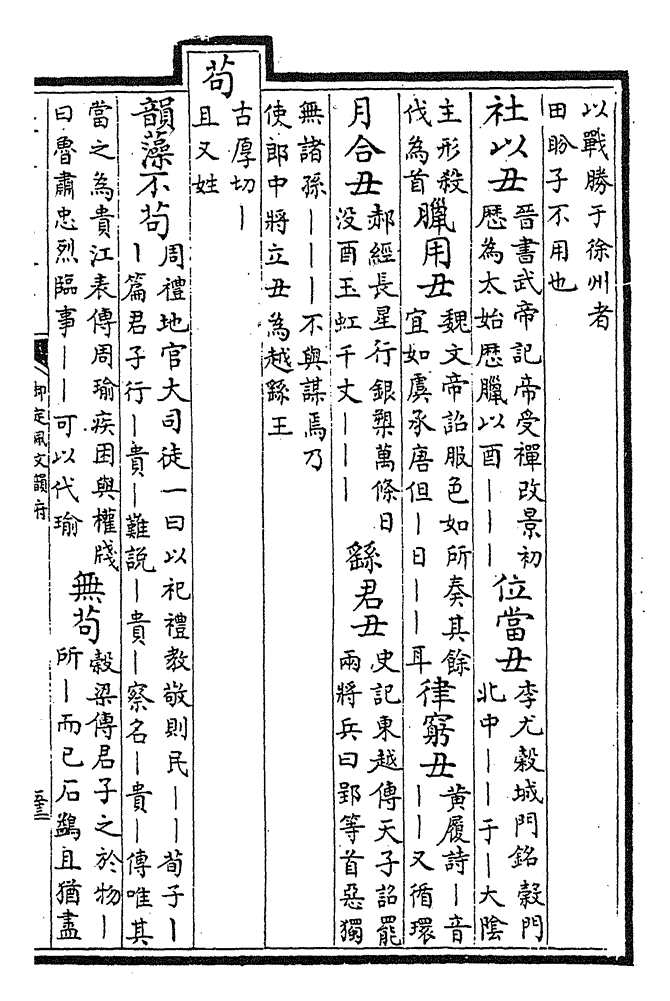 以戰勝于徐州者
田盼子不用也
社以丑
晉書武帝記帝受禪改景初
厯為太始厯臘以酉丨丨丨
位當丑
李尤榖城門銘榖門
北中丨丨于丨大陰
主形殺
伐為首
臘用丑
魏文帝詔服色如所奏其餘
宜如虞承唐但丨日丨丨耳
律窮丑
黃履詩丨音
丨丨又循環
月合丑
郝經長星行銀槊萬條日
没酉玉虹千丈丨丨丨
繇君丑
史記東越傳天子詔罷
兩將兵曰郢等首惡獨
無諸孫丨丨丨不與謀焉乃
使郎中將立丑為越繇王
苟
古厚切丨
且又姓
韻藻不苟
周禮地官大司徒一曰以祀禮教敬則民丨丨荀子丨
丨篇君子行丨貴丨難説丨貴丨察名丨貴丨傳唯其
當之為貴江表傳周瑜疾困與權牋
曰魯肅忠烈臨事丨丨可以代瑜
無苟
榖梁傳君子之於物丨
所丨而已石鷁且猶盡
御定佩文韻府